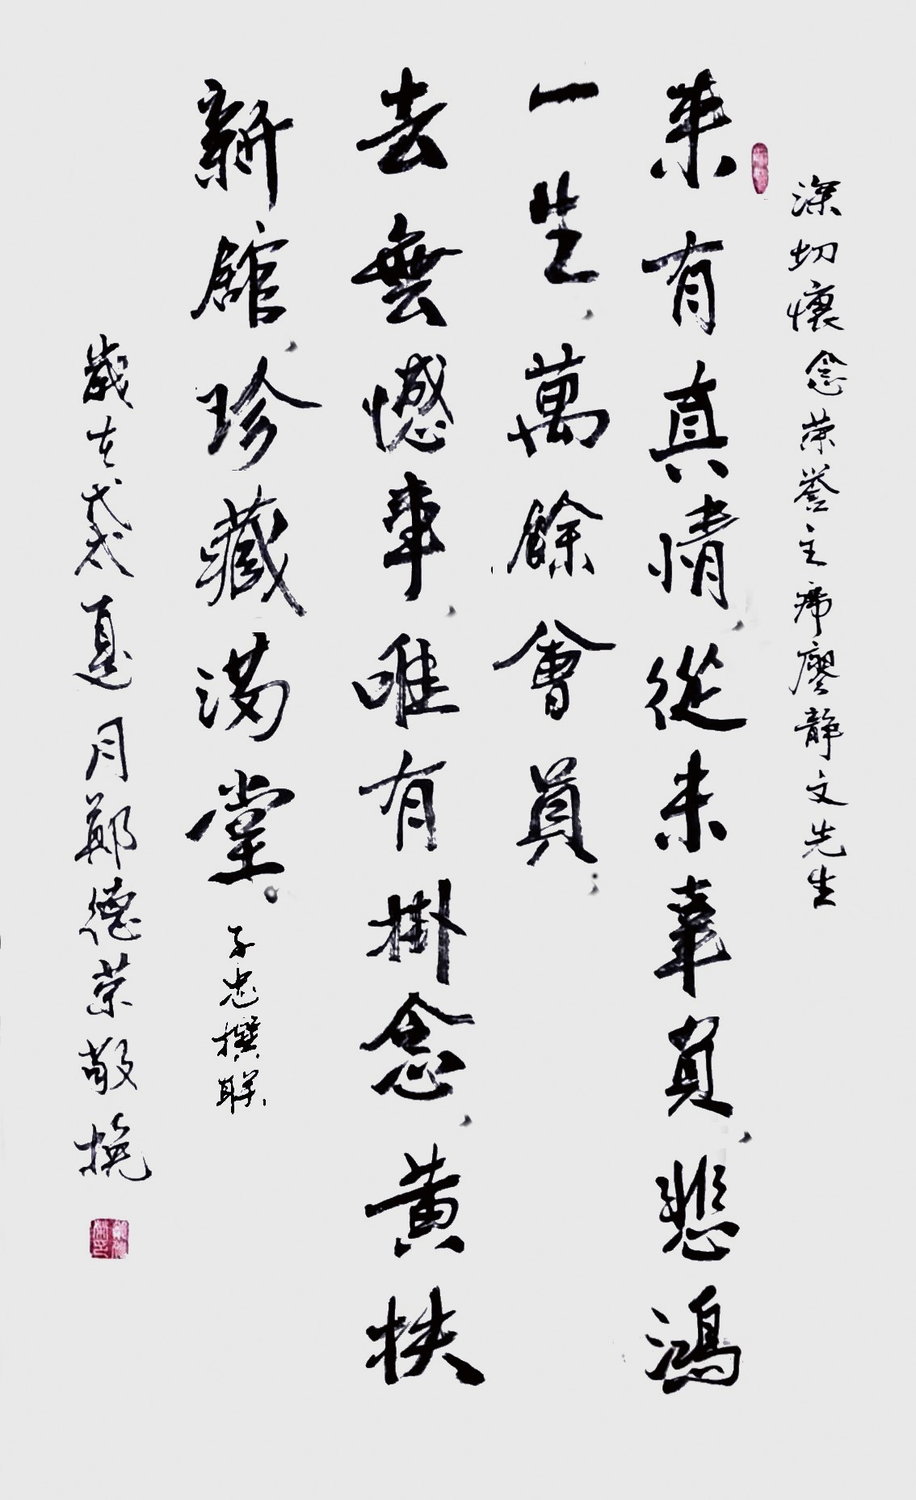 深切懷念荣誉主席廖静文先生
来有真情，從未辜負，悲鴻
一生，萬餘會員；
去無憾事，唯有掛念，黄扶
新館，珍藏满堂。子忠撰联
歲在夏月鄭德荣敬挽